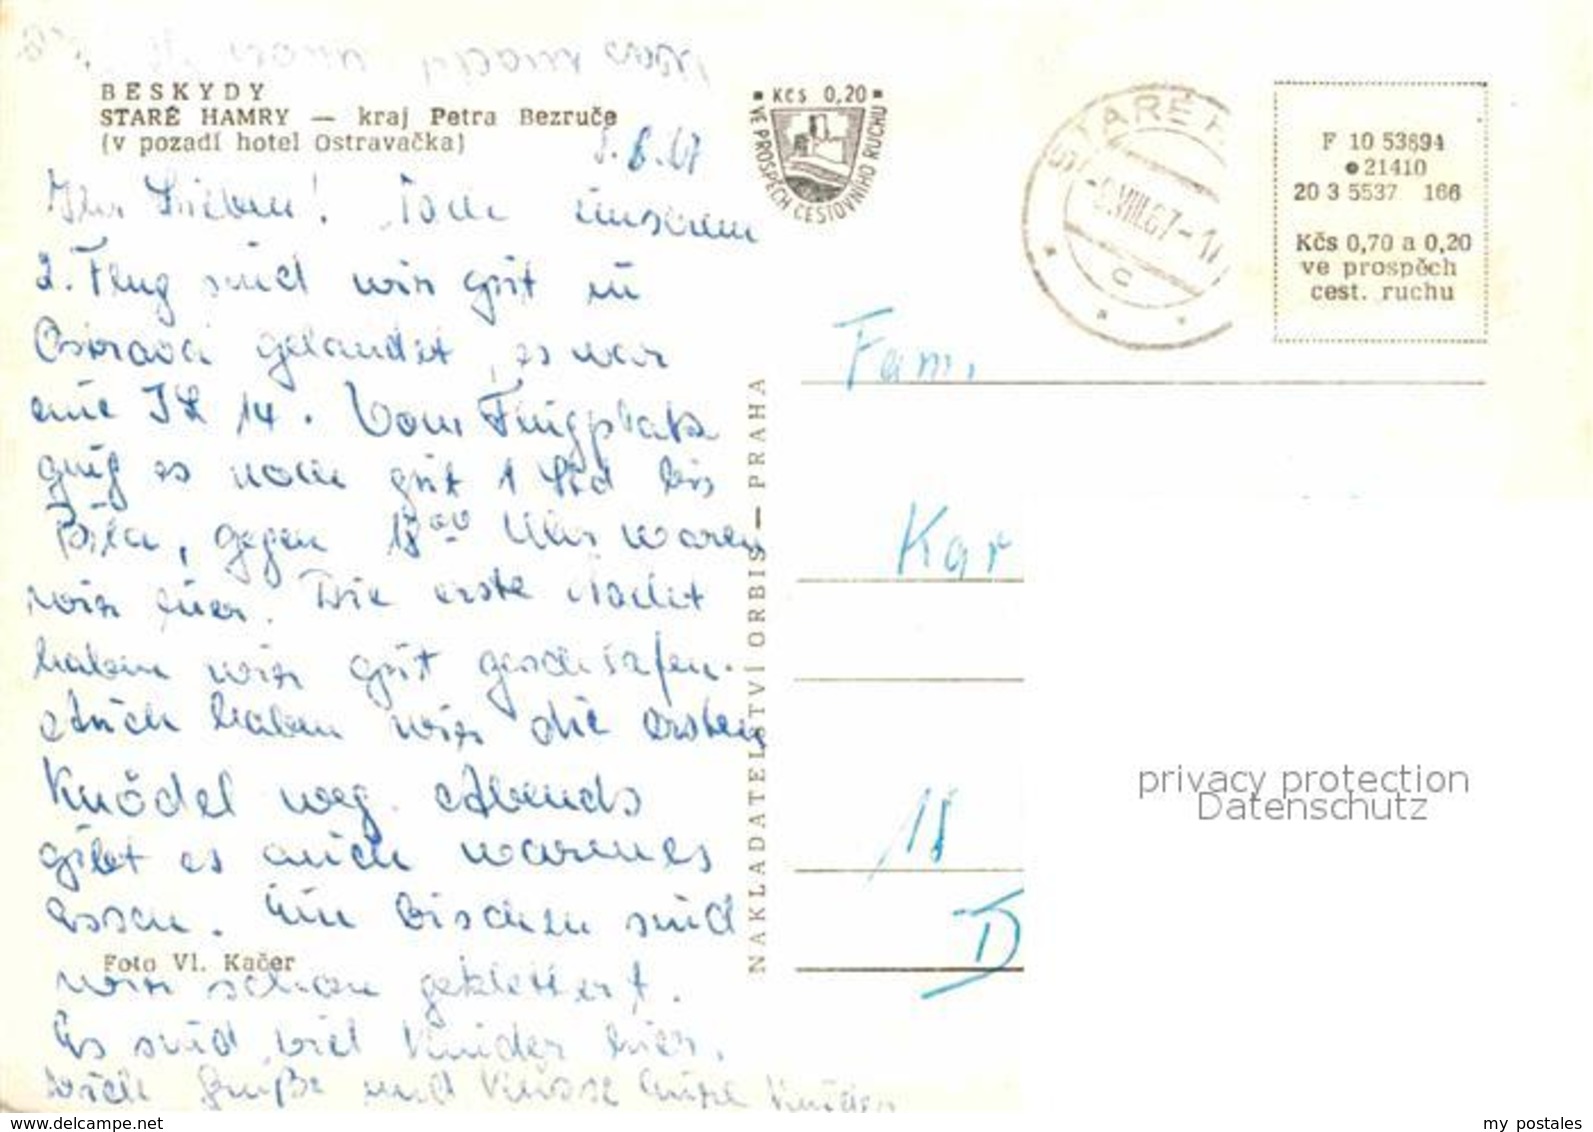 BESKYDY
STARÉ HAMRY — kraj Petra Bezruče
(v pozadí hotel Ostravačka)
8.8.67
Ihr Lieben! Nach unserem
2. Flug sind wir gut in
Ostrava gelandet, es war
eine IL 14. Vom Flugplatz
ging es noch gut 1 Std bis
Bila, gegen 18⁰⁰ Uhr waren
wir hier. Die erste Nacht
haben wir gut geschlafen.
Auch haben wir die ersten
Knödel weg. Abends
gibt es auch warmes
essen. Ein bischen sind
Foto Vl. Kačer
wir schon geklettert.
Es sind viel Kinder hier.
Viele Grüße und Küsse Eure Kinder
NAKLADATELSTVÍ ORBIS — PRAHA
KČS 0,20
VE PROSPĚCH CESTOVNÍHO RUCHU
STARÉ H
-9.VIII.67-17
C
F 10 53894
21410
20 3 5537 166
Kčs 0,70 a 0,20
ve prospěch
cest. ruchu
Fam.
Kar
18
D
privacy protection
Datenschutz
my postales